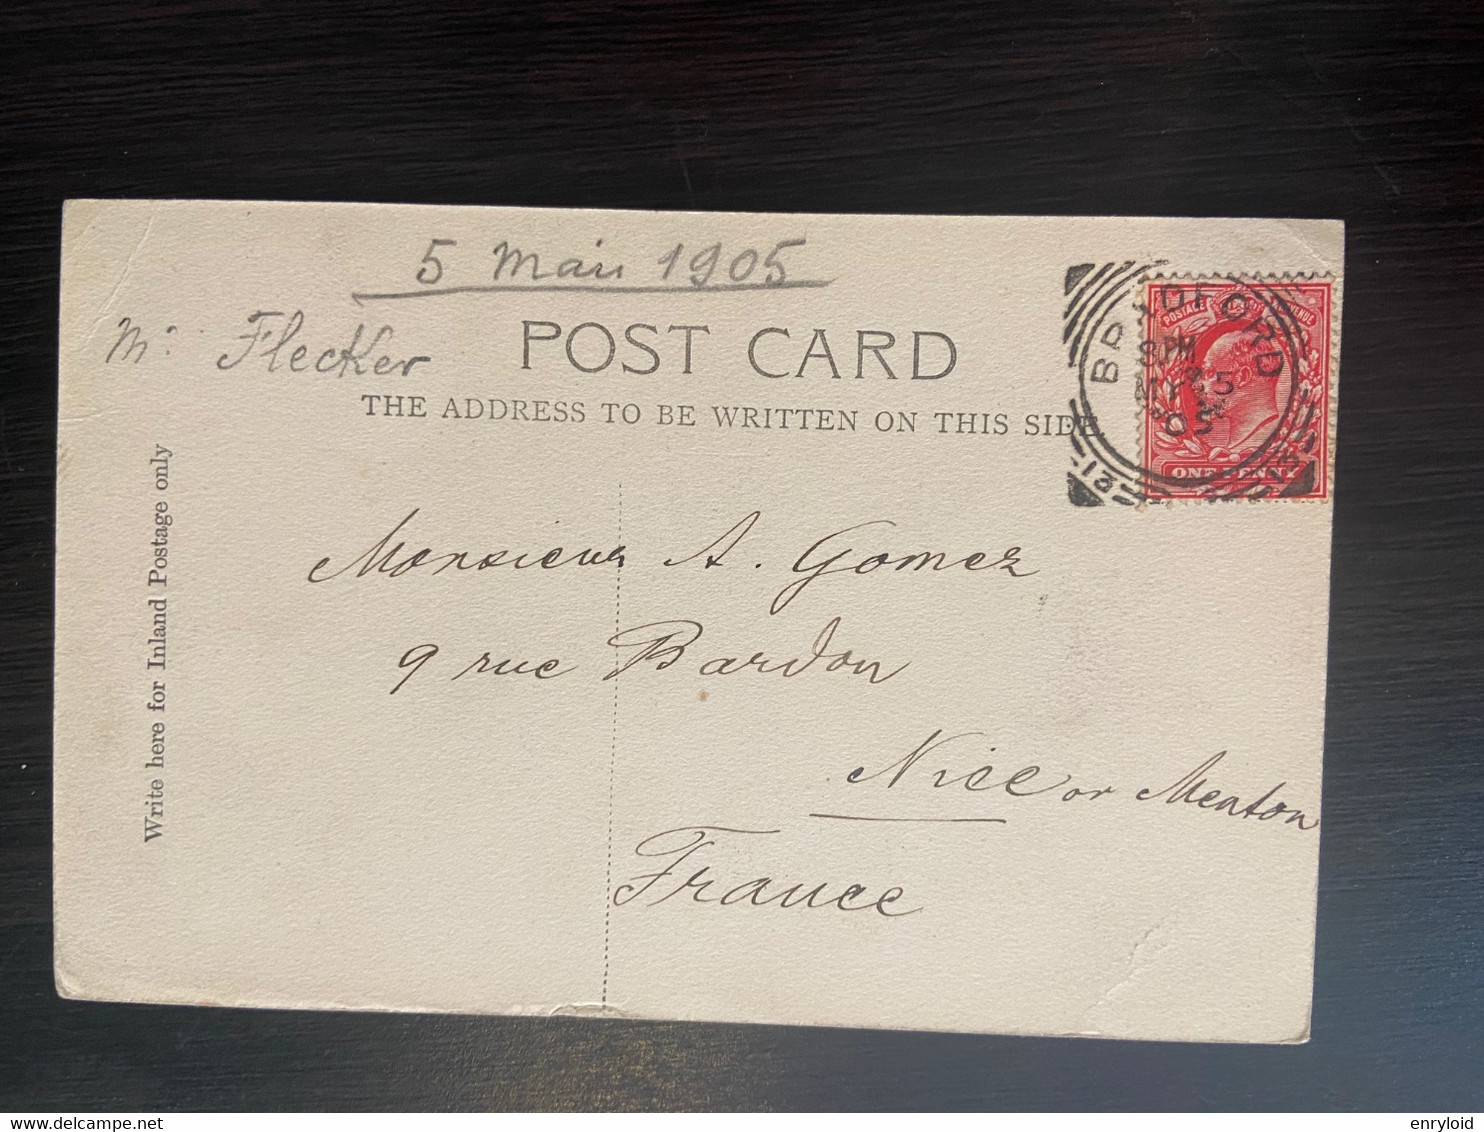 5 Mai 1905
M. Flecker
POST CARD
THE ADDRESS TO BE WRITTEN ON THIS SIDE.
Write here for Inland Postage only
BRADFORD
8 PM
MY 5
05
13
POSTAGE REVENUE
ONE PENNY
Monsieur A. Gomez
9 rue Bardon
Nice or Menton
France
delcampe.net
enryloid